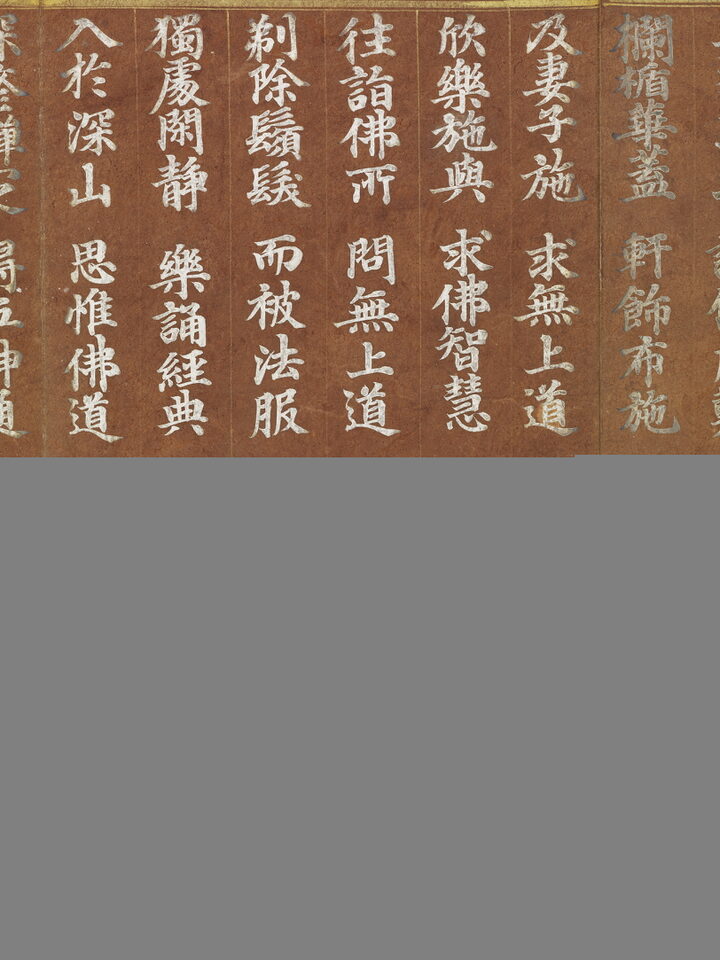 欄楯華蓋 軒飾布施
及妻子施 求無上道
欣樂施與 求佛智慧
往詣佛所 問無上道
剃除鬚髮 而被法服
獨處閑靜 樂誦經典
入於深山 思惟佛道